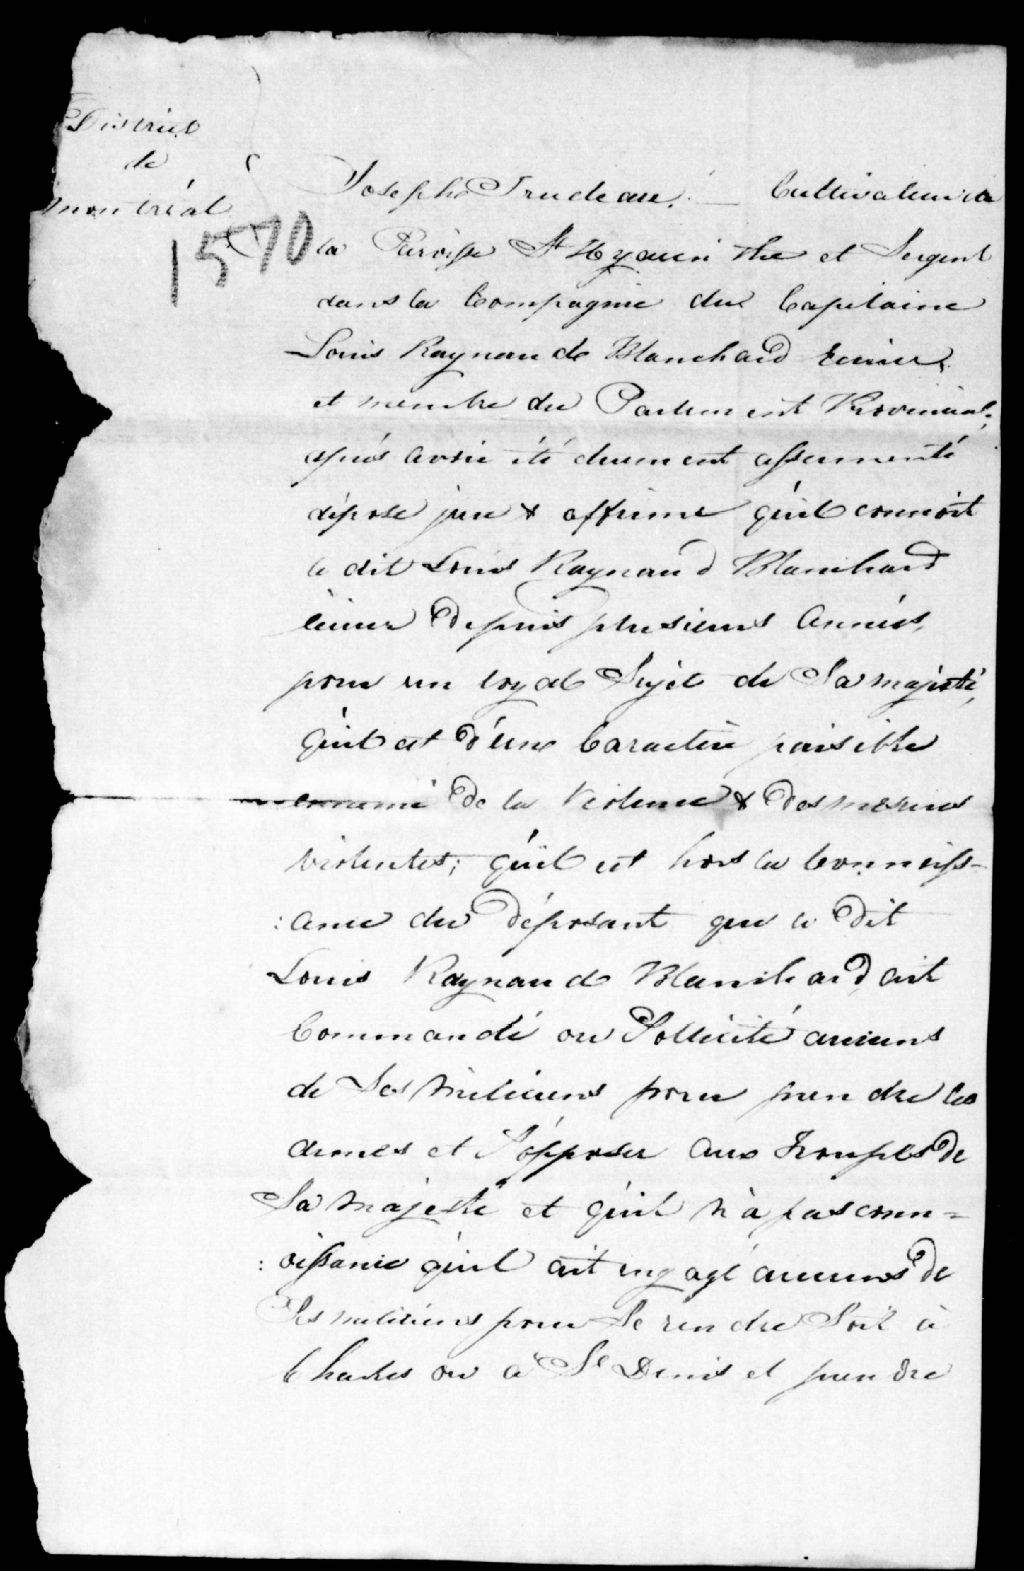 District
de
Montréal
1570
Joseph Trudeau. Cultivateur de
la Paroisse St Hyacinthe et Sergent
dans la Compagnie du Capitaine
Louis Raynaud Blanchard Ecuier,
et membre du Parlement Provincial,
après avoir été duement assermenté
dépose jure & affirme qu'il connoit
le dit Louis Raynaud Blanchard
écuier depuis plusieurs Années,
pour un loyal Sujet de Sa majesté,
qu'il est d'une Caractère paisible
ennemi de la Violence & des mesures
violentes; qu'il est hors la Connoiss=
:ance du Déposant que le dit
Louis Raynaud Blanchard, ait
Commandé ou Sollicité aucuns
de Ses Miliciens pour prendre les
armes et S'opposer aux Troupes de
Sa Majesté et qu'il n'à pas conn=
:oissance qu'il ait engagé aucuns de
Ses miliciens pour Se rendre Soit à
Charles ou à St Denis et prendre